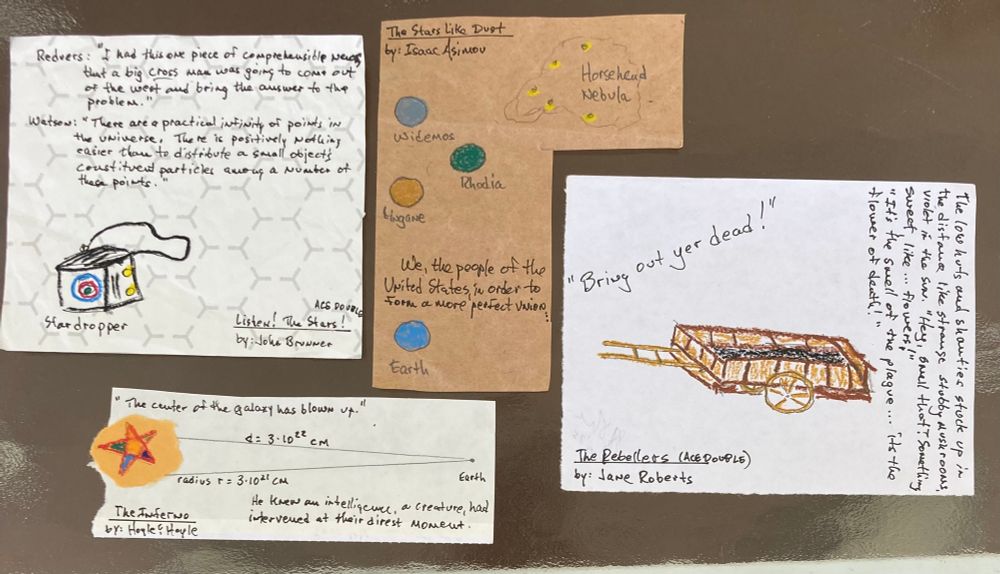 Redvers: "I had this one piece of comprehensible news,
that a big cross man was going to come out
of the west and bring the answer to the
problem."
Watson: "There are a practical infinity of points in
the universe. There is positively nothing
easier than to distribute a small objects
constituent particles among a number of
these points."
Stardropper
ACE DOUBLE
Listen! The Stars!
by: John Brunner
The Stars Like Dust
by: Isaac Asimov
Horsehead
Nebula
Widemos
Rhodia
Lingane
We, the people of the
United States, in order to
form a more perfect Union:
Earth
"Bring out yer dead!"
The low huts and shanties stuck up in
the distance like strange stubby mushrooms,
violet in the sun. "Hey, smell that? Something
sweet, like... flowers!"
"It's the smell of the plague... its the
flower of death!"
The Rebellers (ACE DOUBLE)
by: Jane Roberts
"The center of the galaxy has blown up."
d = 3·10²² cm
radius r = 3·10²¹ cm
Earth
He knew an intelligence, a creature, had
intervened at their direst moment.
The Inferno
by: Hoyle & Hoyle